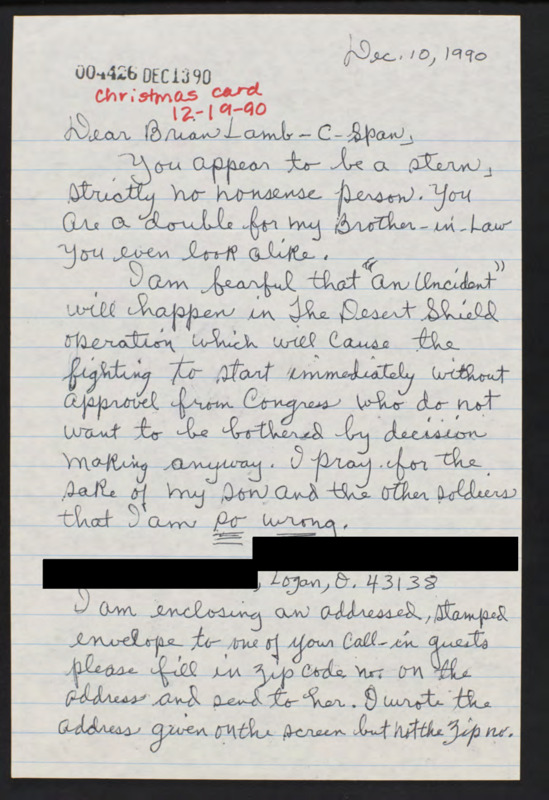 Dec. 10, 1990
004426 DEC1390
Christmas card
12-19-90
Dear Brian Lamb - C-Span,
You appear to be a stern,
strictly no nonsense person. You
are a double for my Brother-in-Law
You even look alike.
I am fearful that "an Uncident"
will happen in The Desert Shield
operation which will cause the
fighting to start immediately without
approvel from Congress who do not
want to be bothered by decision
making anyway. I pray for the
sake of my son and the other soldiers
that I am so wrong.
, Logan, O. 43138
I am enclosing an addressed, stamped
envelope to one of your call-in guests
please fill in zip code no. on the
address and send to her. I wrote the
address given on the screen but not the Zip no.